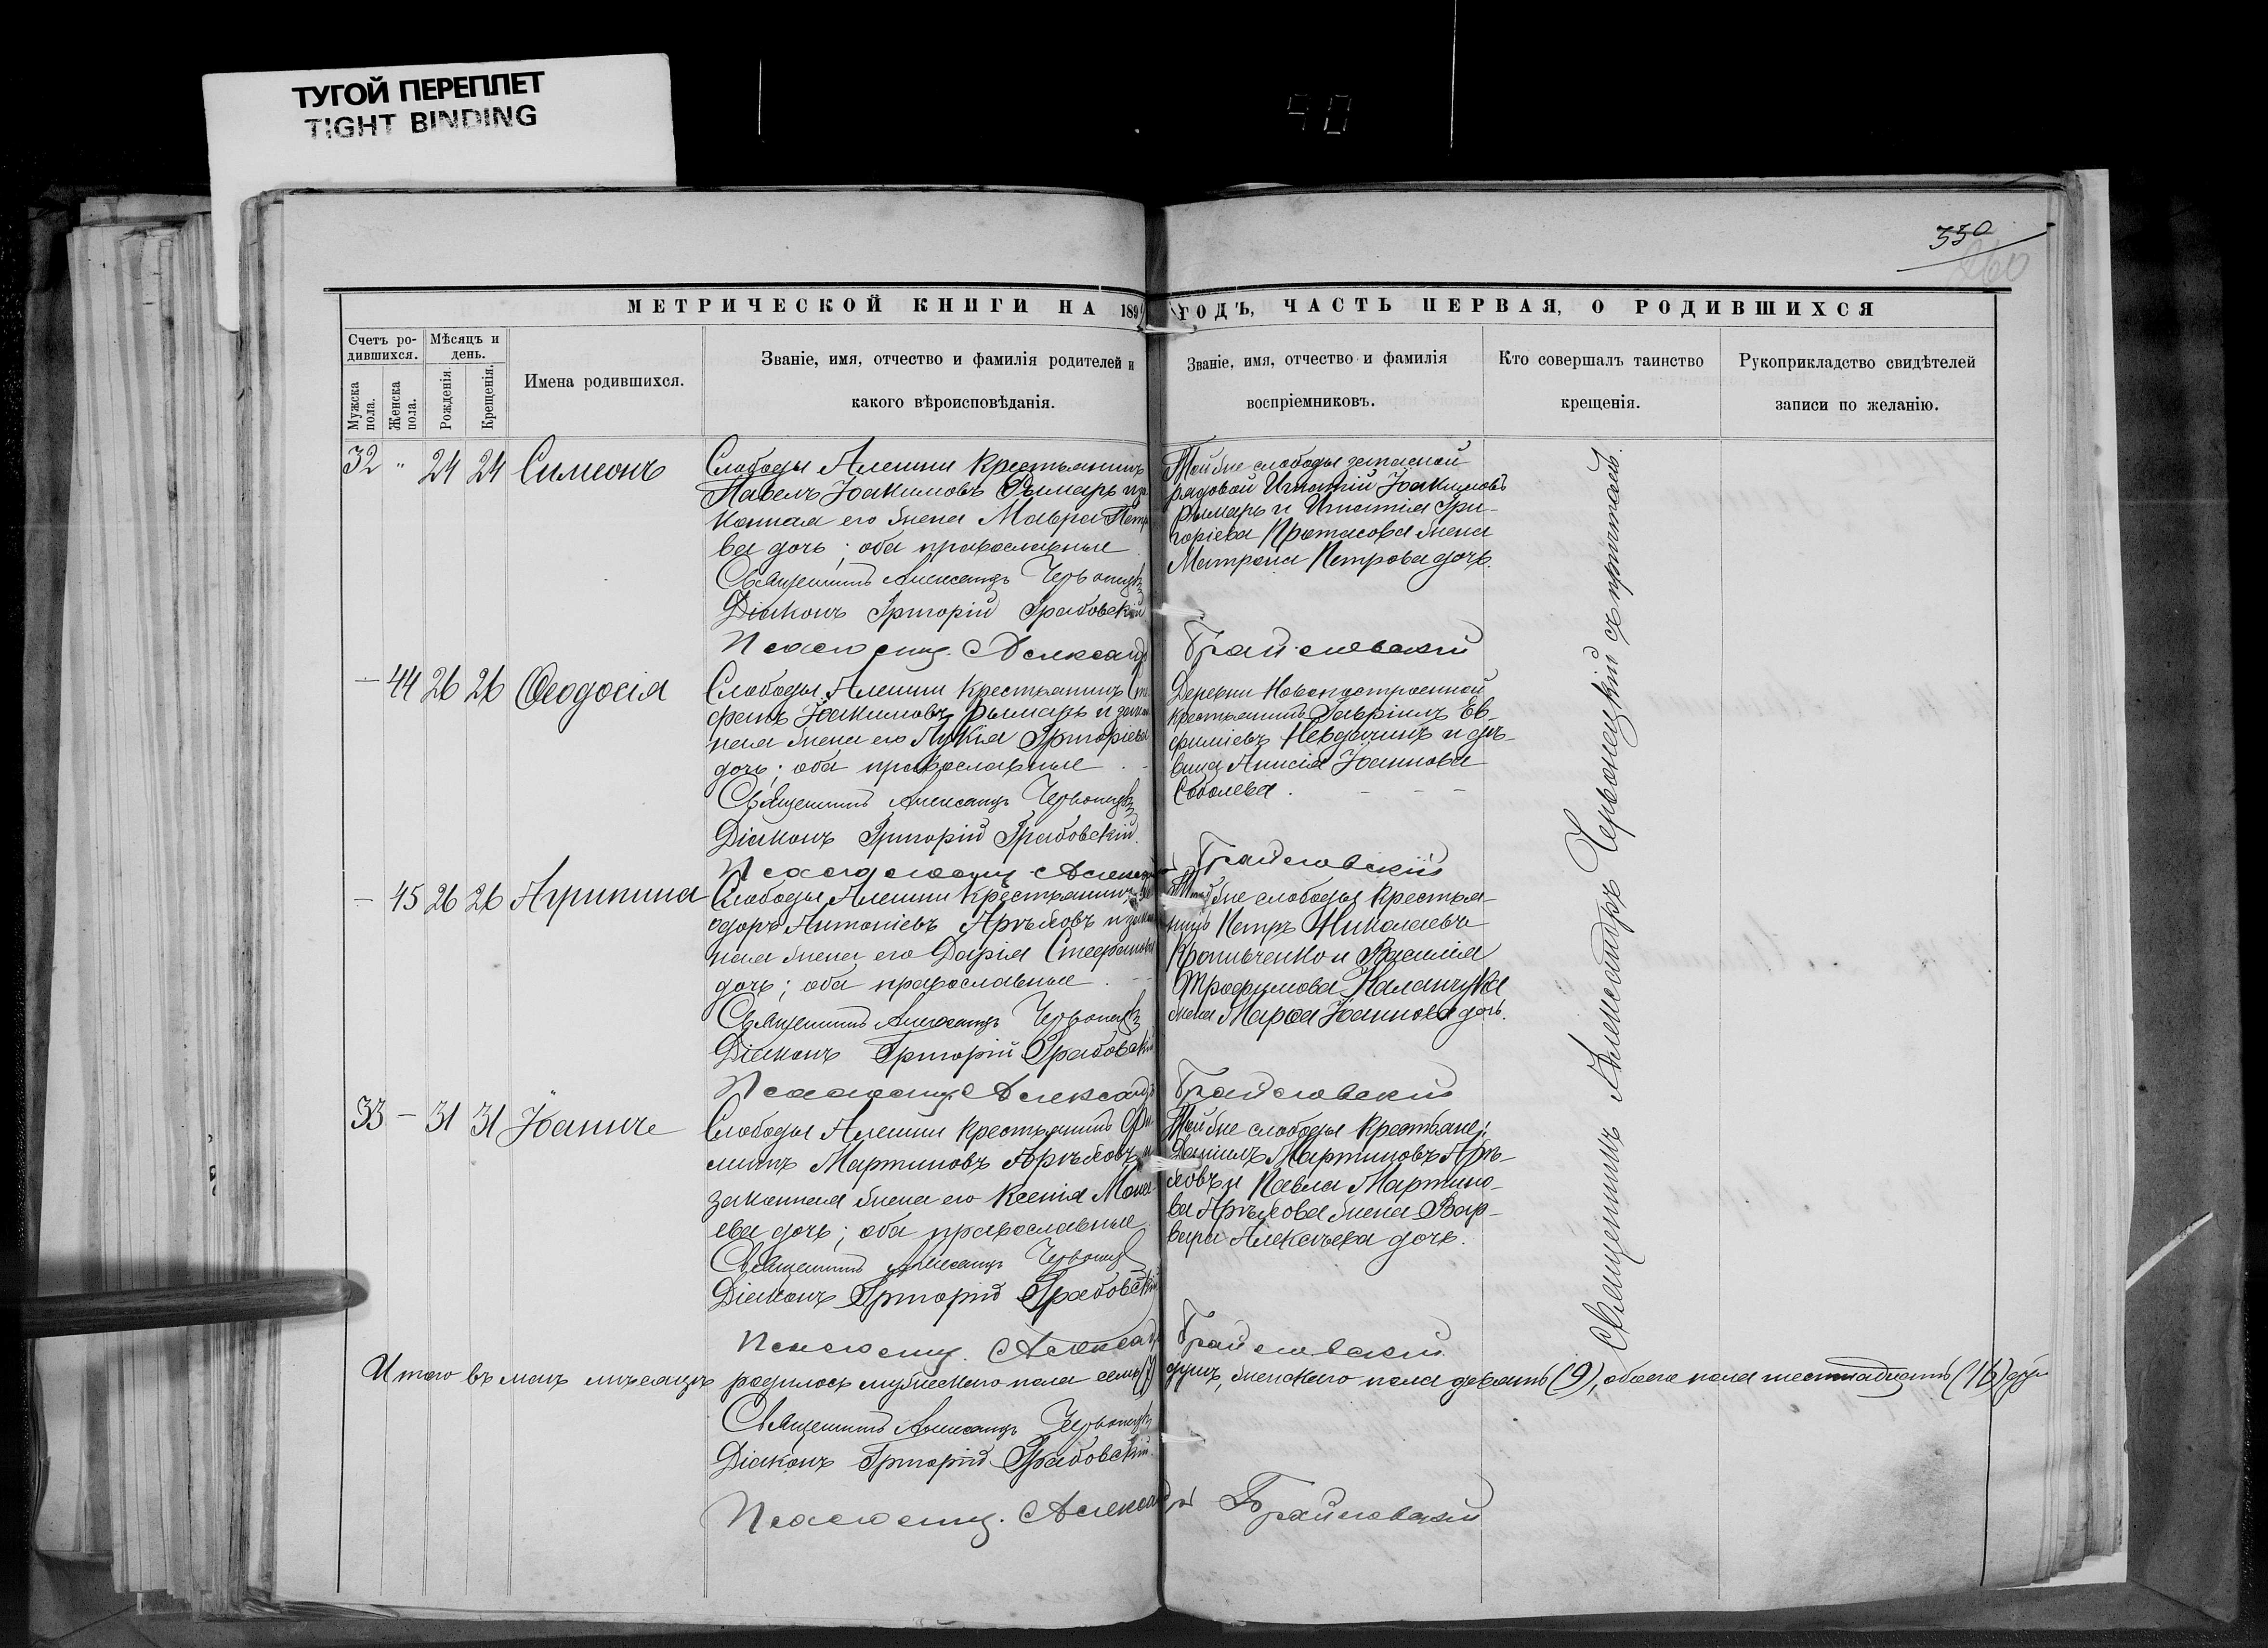 ТУГОЙ ПЕРЕПЛЕТ
TIGHT BINDING
40
350
260
МЕТРИЧЕСКОЙ КНИГИ НА 189 ГОДЪ, ЧАСТЬ ПЕРВАЯ, О РОДИВШИХСЯ
Счетъ ро-
дившихся.
Мужска пола.
Женска пола.
Мѣсяцъ и
день.
Рожденія.
Крещенія.
Имена родившихся.
Званіе, имя, отчество и фамилія родителей и
какого вѣроисповѣданія.
Званіе, имя, отчество и фамилія
воспріемниковъ.
Кто совершалъ таинство
крещенія.
Рукоприкладство свидѣтелей
записи по желанію.
32 " 24 24 Симеонъ
Слободы Алешни крестьянинъ
Павелъ Іоакимовъ Рымарь и за
конная его жена Мавра Петр
ва дочь; оба православные
Священникъ Александръ Червонецкі
Діаконъ Григорій Грабовскій
Псаломщ. Александръ Грайловскій
Той же слободы запасной
рядовой Игнатій Іоакимовъ
Рымарь и Игнатія Гри-
горіева Протасова жена
Матрона Петрова дочь.
— 44 26 26 Ѳеодосія
Слободы Алешни крестьянинъ Сте
фанъ Іоакимовъ Рымарь и закон
ная жена его Лукія Григоріева
дочь; оба православные
Священникъ Александръ Червонецкі
Діаконъ Григорій Грабовскій.
Псаломщ Александръ Грайловскій
Деревни Новопостроенной
крестьянинъ Гавріилъ Ев-
фиміевъ Невдачинъ и дѣ-
вица Анисія Іоаннова
Соболева.
— 45 26 26 Агрипина
Слободы Алешни крестьянинъ Ѳе
одоръ Антоніевъ Арѣховъ и закон
ная жена его Дарія Стефанова
дочь; оба православные
Священникъ Александръ Червонецкі
Діаконъ Григорій Грабовскій
Псаломщ. Александръ Грайловскій
Той же слободы крестья-
нинъ Петръ Николаевъ
Кропивченко и Василія
Трофимова Каланчука
жена Марѳа Іоаннова дочь.
33 — 31 31 Іоаннъ
Слободы Алешни крестьянинъ Фи
липпъ Мартиновъ Арѣховъ и
законная жена его Ксенія Моисе
ева дочь; оба православные
Священникъ Александръ Червонецкі
Діаконъ Григорій Грабовскій
Псаломщ. Александръ Грайловскій
Той же слободы крестьяне:
Даніилъ Мартиновъ Арѣ-
ховъ и Павла Мартино-
ва Арѣхова жена Вар-
вара Алексѣева дочь.
Священникъ Александръ Червонецкій съ причтомъ.
Итого въ маѣ мѣсяцѣ родилось мужескаго пола семь (7) душъ, женскаго пола девять (9), обоего пола шестнадцать (16) душ
Священникъ Александръ Червонецкі
Діаконъ Григорій Грабовскій.
Псаломщ. Александръ Грайловскій